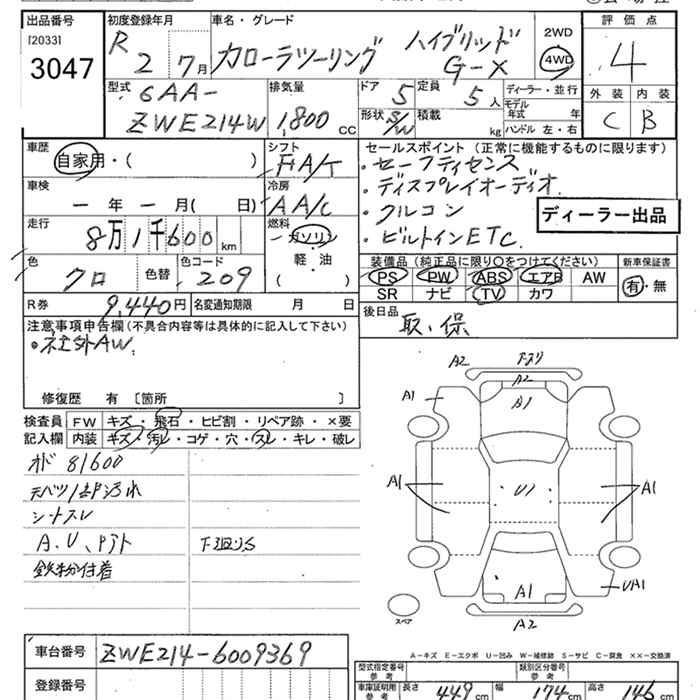 出品番号 初度登録年月 車名・グレード 評価点
[2033] R 2 7月 カローラツーリング ハイブリッド G-X 2WD 4WD 4
3047
型式 6AA- ZWE214W 排気量 1,800 CC ドア 5 定員 5 人 ディーラー・並行 外装 内装
形状 S/W 積載 kg モデル年式 年 C B
ハンドル 左・右
車歴 自家用・( ) シフト FA/T セールスポイント (正常に機能するものに限ります)
・セーフティセンス
車検 ー 年 ー 月( 日) 冷房 AA/C ・ディスプレイオーディオ.
・クルコン ディーラー出品
走行 8万1千600 km 燃料 ガソリン ・ビルトインETC.
軽・油
( )
色 クロ 色替 色コード 209 装備品 (純正品に限り○をつけてください) 新車保証書
PS PW ABS エアB AW 有・無
SR ナビ TV カワ
R券 9,440円 名変通知期限 月 日 後日品
取、保
注意事項申告欄(不具合内容等は具体的に記入して下さい)
・社外AW.
修復歴 有 〔箇所 〕
検査員 FW キズ・飛石・ヒビ割・リペア跡・×要
記入欄 内装 キズ・汚レ・コゲ・穴・スレ・キレ・破レ
A2 A2
A1 A1
オド 81600
シートスレ
A1 U1 A1
A、U、 下廻りS
鉄粉付着
A1 UA1
スペア A2
A-キズ E-エクボ U-凹み W-補修跡 S-サビ C-腐食 ××-交換済
車台番号 ZWE214-6009369
型式指定番号 参考 類別区分番号 参考
登録番号 車庫証明用 参考 長さ 449 cm 幅 174 cm 高さ 146 cm